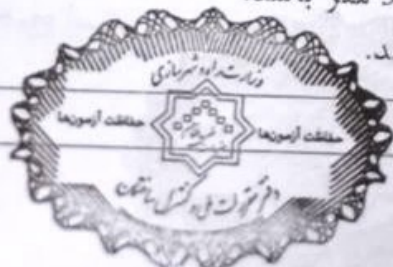 د.
وزارت راه و شهرسازی
حفاظت آزمونها
حفاظت آزمونها
دفتر مقررات ملی و کنترل ساختمان